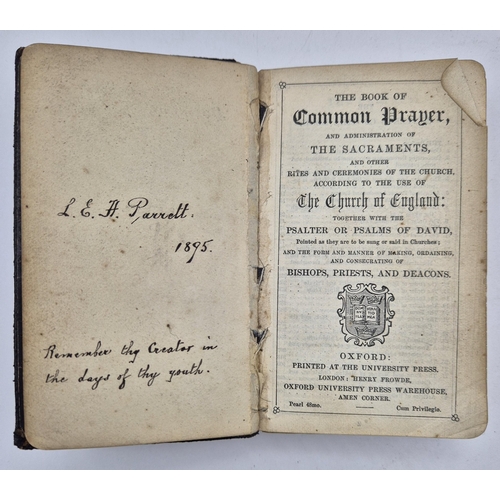 L. E. A. Parrett.
1895.
Remember thy Creator in
the days of thy youth.
THE BOOK OF
Common Prayer,
AND ADMINISTRATION OF
THE SACRAMENTS,
AND OTHER
RITES AND CEREMONIES OF THE CHURCH,
ACCORDING TO THE USE OF
The Church of England:
TOGETHER WITH THE
PSALTER OR PSALMS OF DAVID,
Pointed as they are to be sung or said in Churches;
AND THE FORM AND MANNER OF MAKING, ORDAINING,
AND CONSECRATING OF
BISHOPS, PRIESTS, AND DEACONS.
OXFORD:
PRINTED AT THE UNIVERSITY PRESS.
LONDON: HENRY FROWDE,
OXFORD UNIVERSITY PRESS WAREHOUSE,
AMEN CORNER.
Pearl 48mo.
Cum Privilegio.